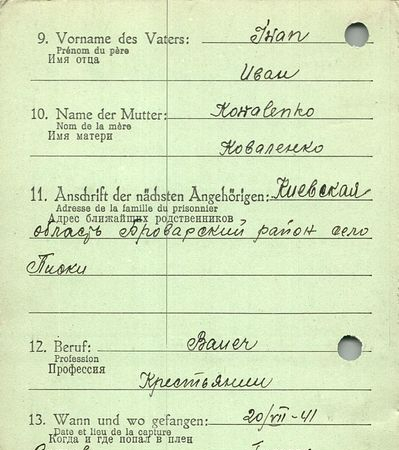 9. Vorname des Vaters: Iwan
Prénom du père
Имя отца
Иван
10. Name der Mutter: Kowalenko
Nom de la mère
Имя матери
Коваленко
11. Anschrift der nächsten Angehörigen: Киевская
Adresse de la famille du prisonnier
Адрес ближайших родственников
область Броварский район село
12. Beruf: Bauer
Profession
Профессия
Крестьянин
13. Wann und wo gefangen: 20/VII-41
Date et lieu de la capture
Когда и где попал в плен